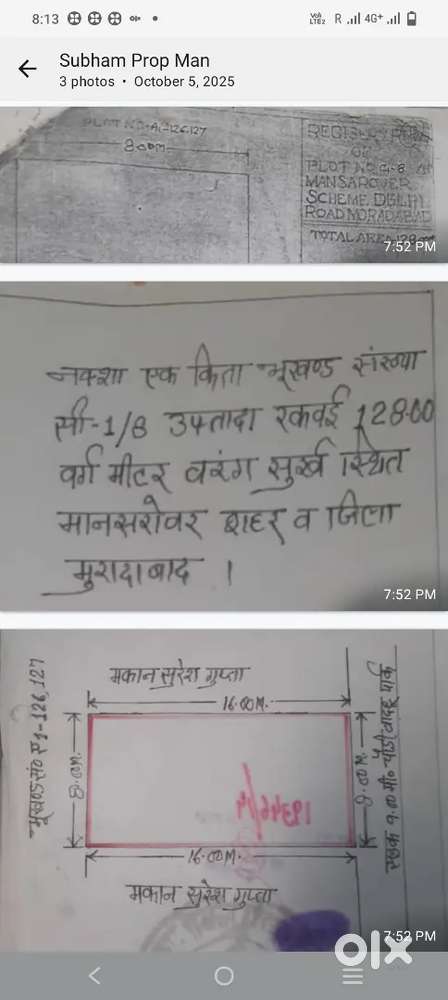 8:13
VoLTE2 R 4G+
Subham Prop Man
3 photos • October 5, 2025
PLOT NO-A-126,127
8.00M.
PLOT NO
MANSAROVER
SCHEME. DELHI
ROAD MORADABAD
TOTAL AREA
7:52 PM
नक्शा एक किता भूखण्ड संख्या
सी-1/8 उफ्तादा रकवई 128.00
वर्ग मीटर वरंग सुर्ख स्थित
मानसरोवर शहर व जिला
मुरादाबाद ।
7:52 PM
मकान सुरेश गुप्ता
16.00M.
भूखण्ड सं० ए1-126,127
8.00M.
8.00M.
सड़क 9.00 मी० चौडी वादहू पार्क
16.00M.
मकान सुरेश गुप्ता
7:52 PM
olx